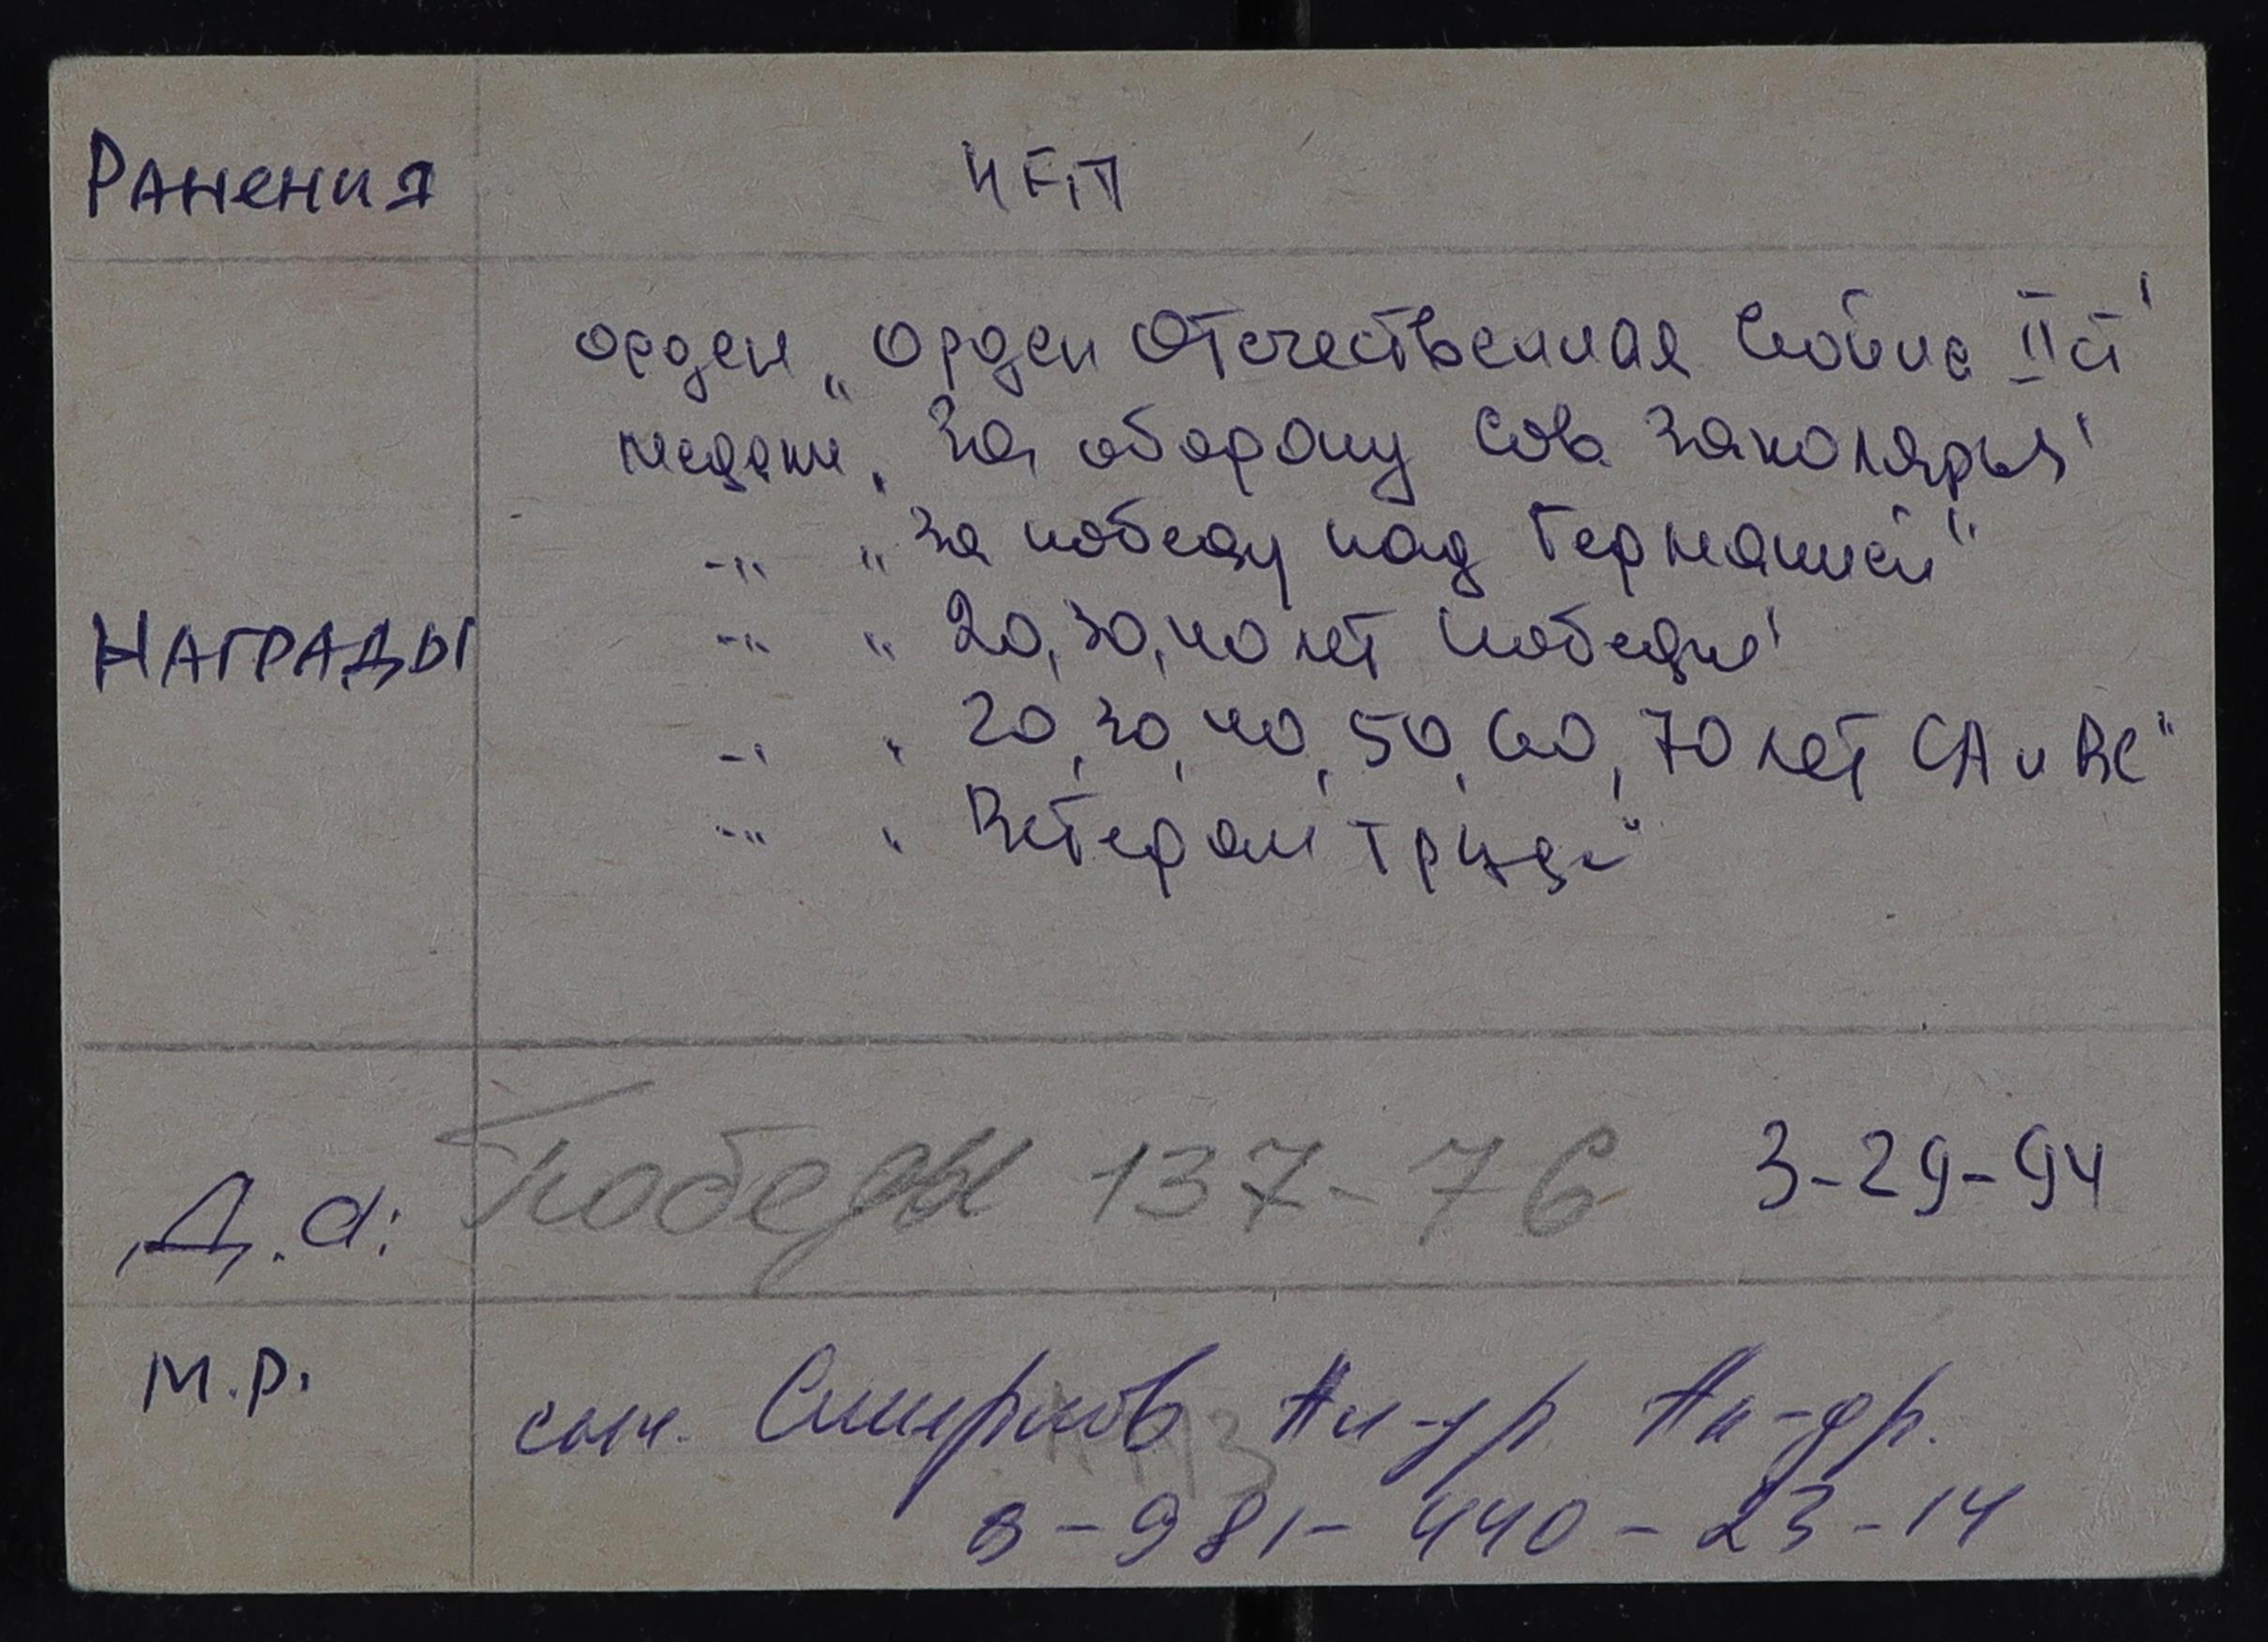 Ранения нет
орден „Орден Отечественная война II ст"
медали „За оборону Сов. Заполярья"
-"- „За победу над Германией"
Награды -"- „20, 30, 40 лет победы"
-"- „20, 30, 40, 50, 60, 70 лет СА и ВС"
-"- „Ветеран труда"
Д.а: Победы 137-76 3-29-94
М.р. сын. Смирнов Ан-др Ан-др.
8-981-440-23-14